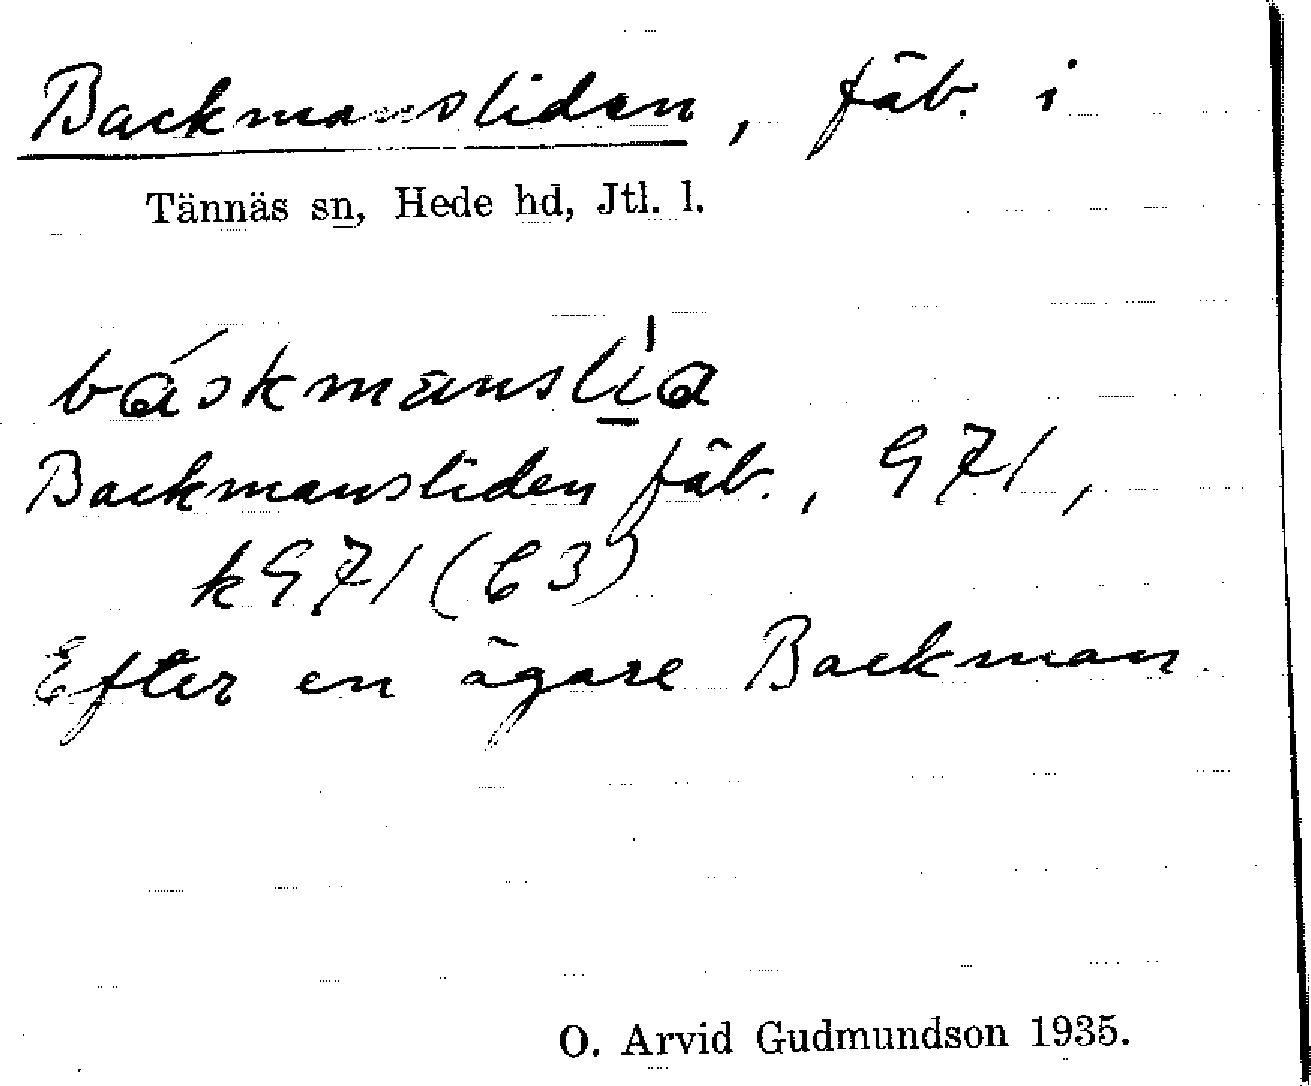 Backmansliden, fäb. i
Tännäs sn, Hede hd, Jtl. l.
báskmansli̠a
Backmansliden fäb., G71,
kG71(C3)
Efter en ägare Backman
O. Arvid Gudmundson 1935.